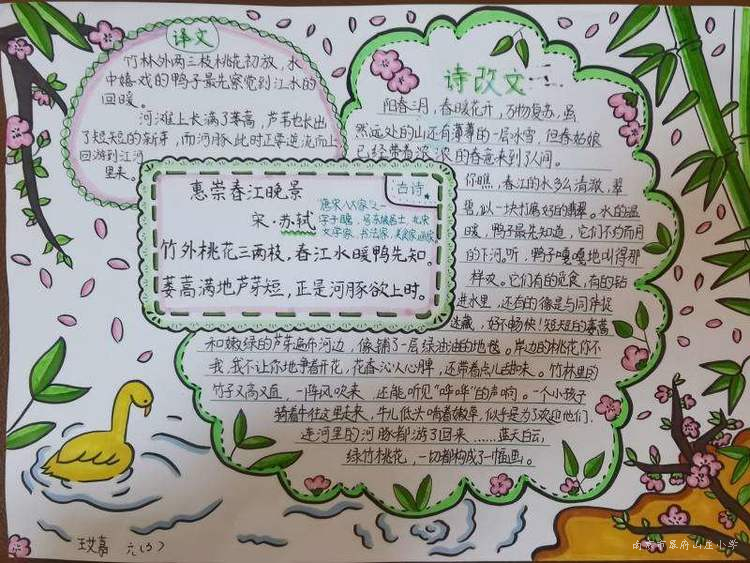 译文
竹林外两三枝桃花初放，水
中嬉戏的鸭子最先察觉到江水的
回暖。
河滩上长满了蒌蒿，芦苇也长出
了短短的新芽，而河豚此时正要逆流而上
回游到江河
里来。
古诗
惠崇春江晚景
宋·苏轼
唐宋八大家之一
字子瞻，号东坡居士，北宋
文学家、书法家、美食家、画家
竹外桃花三两枝，春江水暖鸭先知。
蒌蒿满地芦芽短，正是河豚欲上时。
诗改文
阳春三月，春暖花开，万物复苏，虽
然远处的山还有薄薄的一层冰雪，但春姑娘
已经带着浓浓的春意来到了人间。
你瞧，春江的水多么清澈，翠
碧，似一块打磨好的翡翠。水的温
暖，鸭子最先知道，它们不约而同
的下河。听，鸭子嘎嘎地叫得那
样欢。它们有的觅食，有的钻
进水里，还有的像是与同伴捉
迷藏，好不畅快！短短的蒌蒿
和嫩绿的芦芽遍布河边，像铺了一层绿油油的地毯。岸边的桃花你不
我，我不让你地争着开花，花香沁人心脾，还带着点儿甜味。竹林里的
竹子又高又直，一阵风吹来，还能听见“哗哗”的声响。一个小孩子
骑着牛往这里走来，牛儿低头啃着嫩草，似乎是为了欢迎他们，
连河里的河豚都游了回来……蓝天白云，
绿竹桃花，一切都构成了一幅画。
王艾嘉 六（3）
南充市嘉府山庄小学